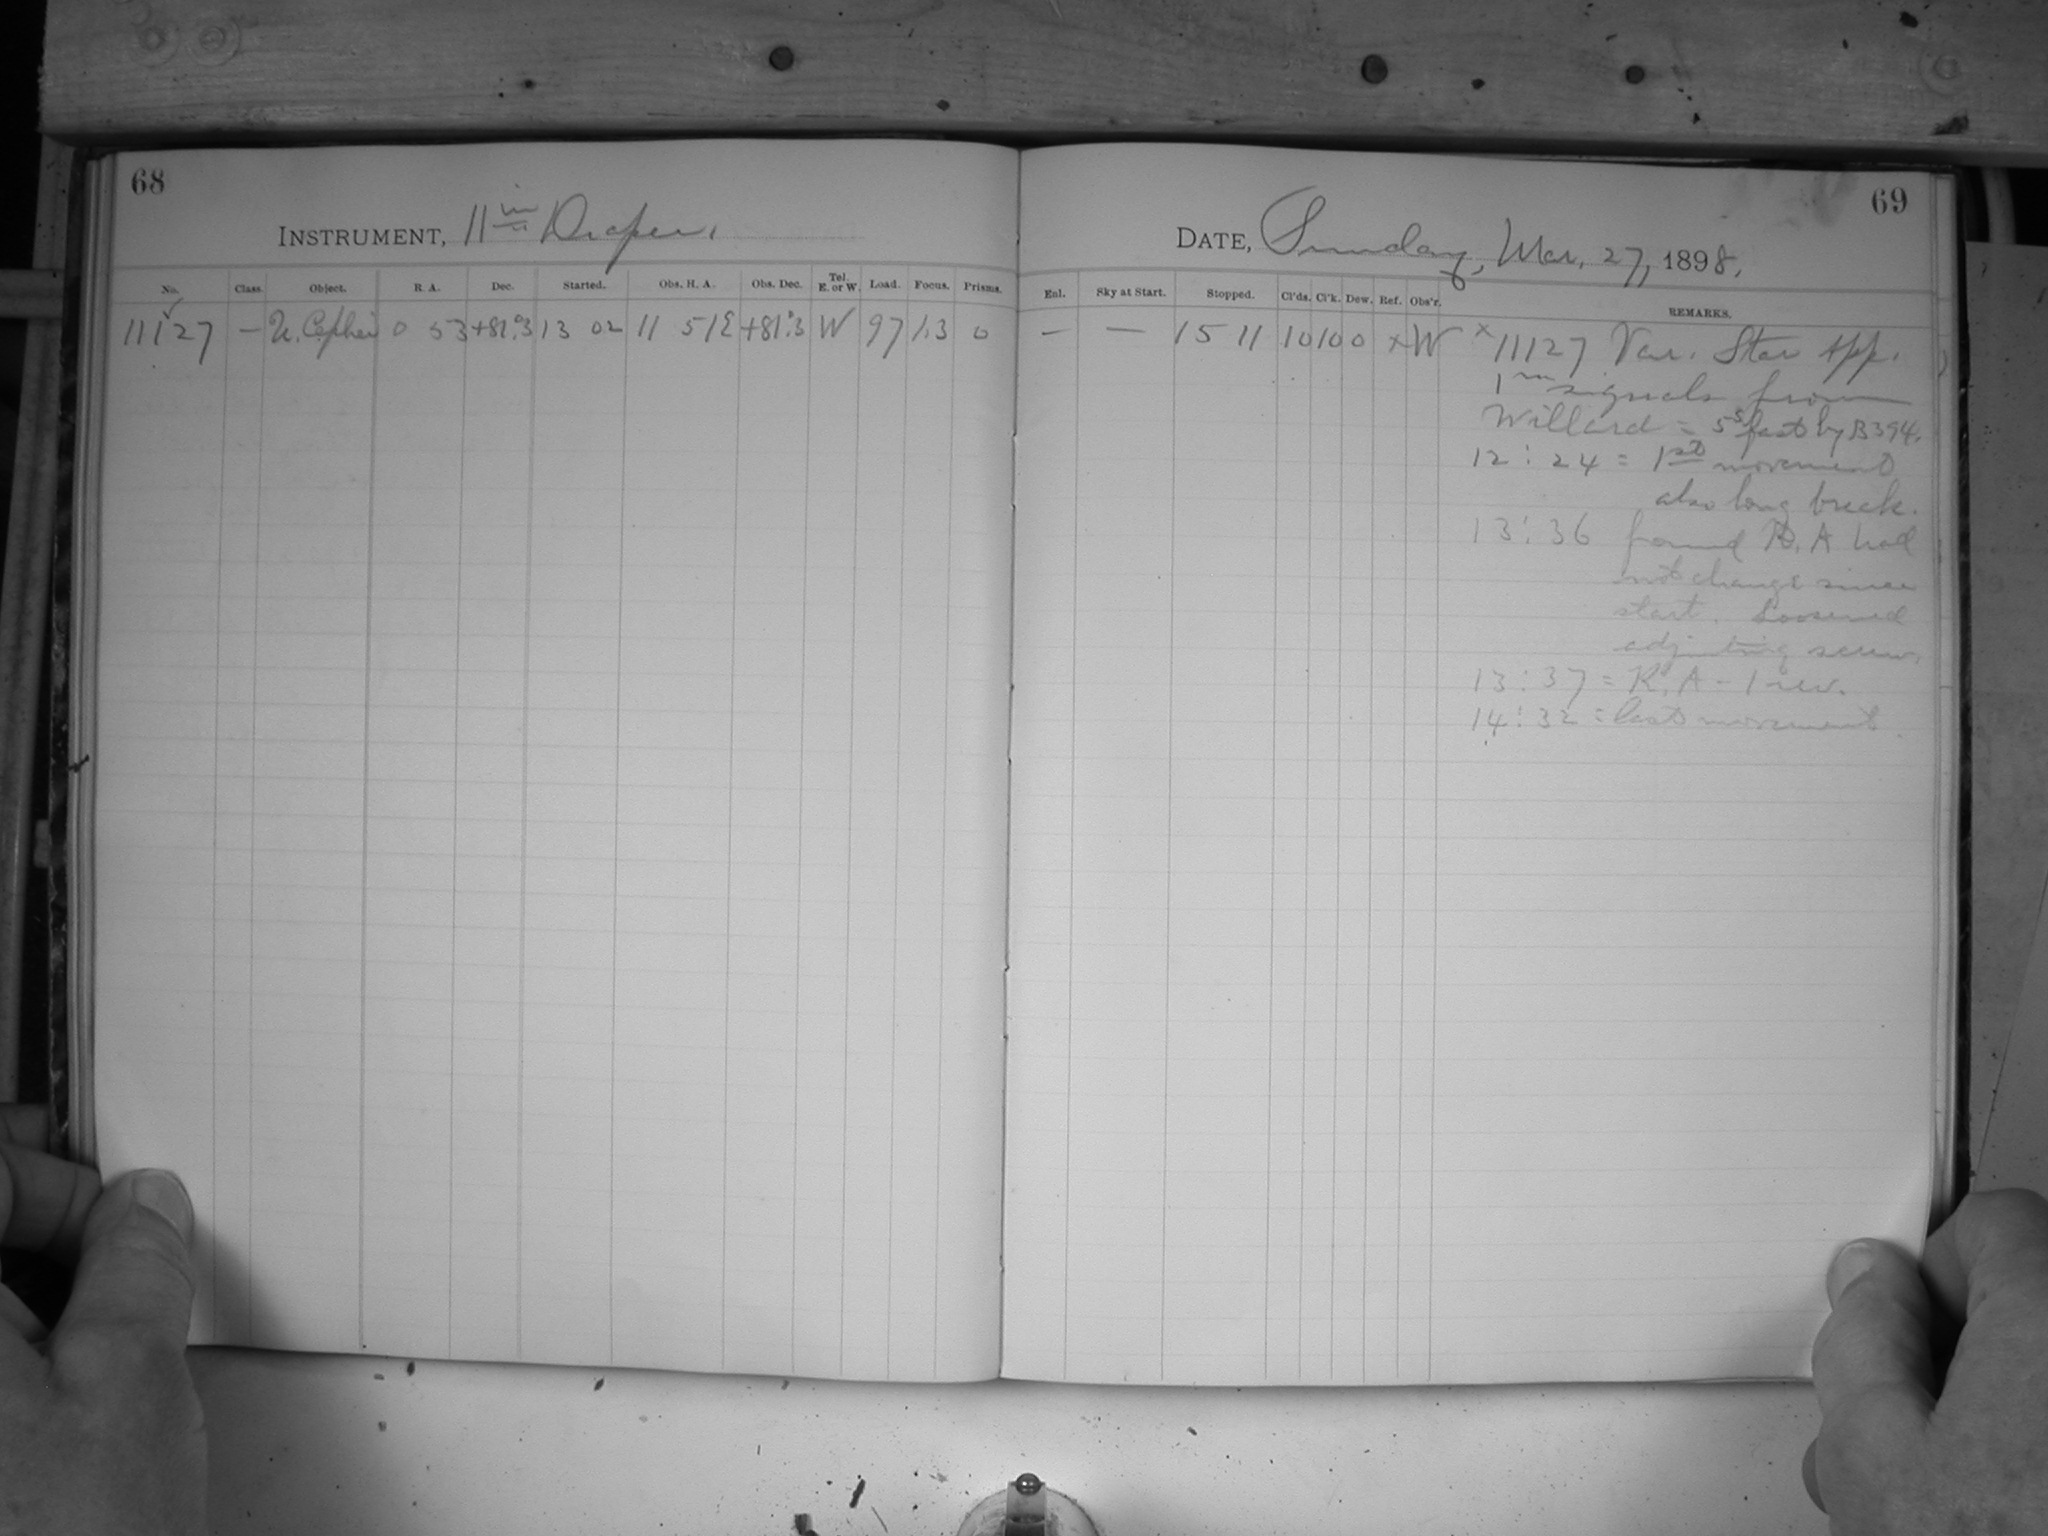 68
69
INSTRUMENT, 11in Draper.
DATE, Sunday, Mar. 27, 1898.
No. Class. Object. R. A. Dec. Started. Obs. H. A. Obs. Dec. Tel. E. or W. Load. Focus. Prisms. Enl. Sky at Start. Stopped. Cl'ds. Cl'k. Dew. Ref. Obs'r. REMARKS.
11127 — U. Cephei 0 53 +81.°3 13 02 11 51E +81.°3 W 97 1.3 0 — — 15 11 10 10 0 x W x 11127 Var. Star App.
1m signals from
Willard = 5s fast by B394.
12:24 = 1st movement
also long break.
13:36 found R. A had
not change since
start. Loosened
adjusting screw.
13:37 = R. A - 1 rev.
14:32 = last movement.